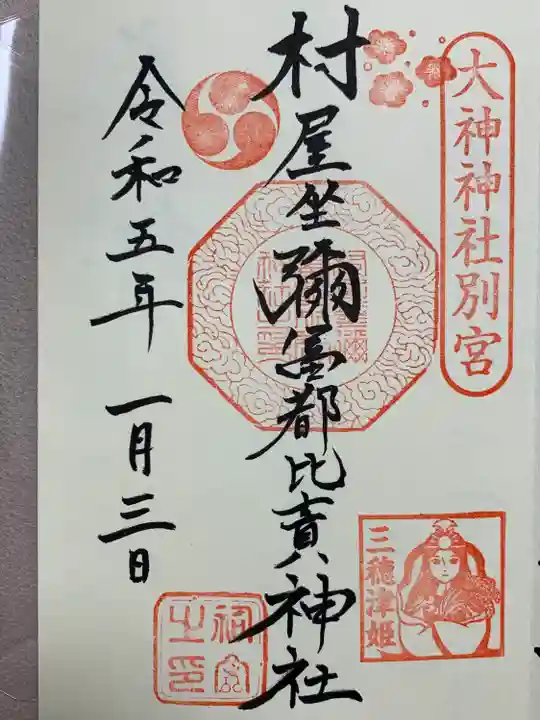 大神神社別宮
村屋坐彌冨都比賣神社
三穂津姫
令和五年一月三日